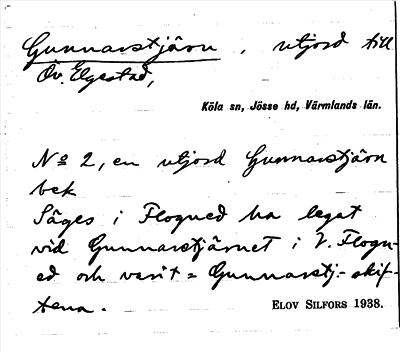 Gunnarstjärn, utjord till
Öv. Elgestad,
Köla sn, Jösse hd, Värmlands län.
No 2, en utjord Gunnarstjärn
bek
Säges i Flogned ha legat
vid Gunnarstjärnet i V. Flogn-
ed och varit = Gunnarstj.- skif-
tena.
ELOV SILFORS 1938.